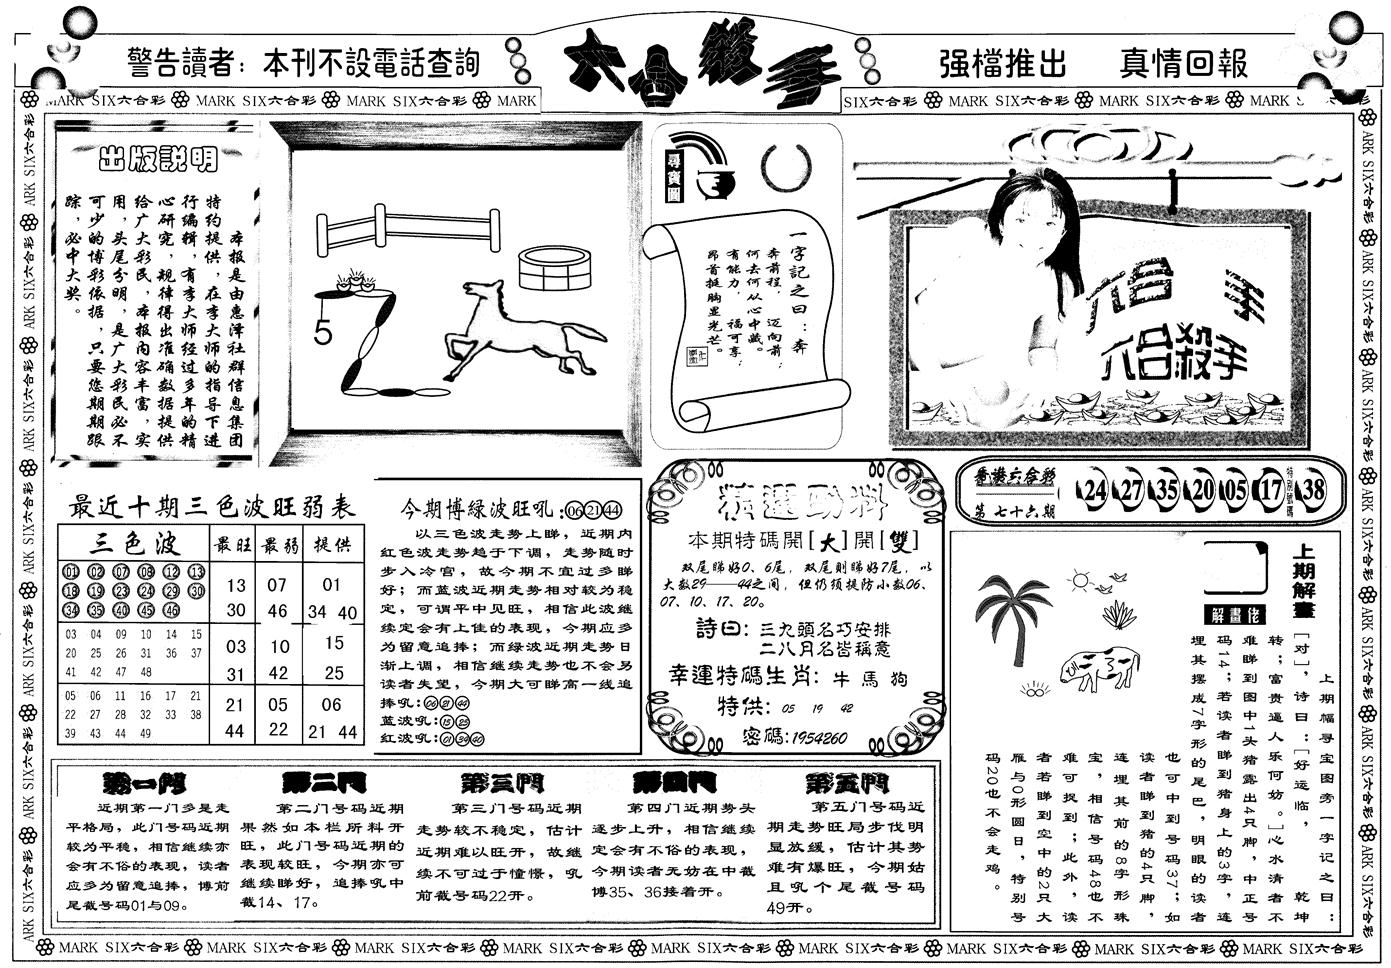 警告讀者：本刊不設電話查詢
六合殺手
强檔推出 真情回報
MARK SIX六合彩 MARK SIX六合彩 MARK SIX六合彩 MARK
SIX六合彩 MARK SIX六合彩 MARK SIX六合彩 MARK
出版説明
本报是由惠泽社群信息集团
特约提供，在李大师的指导下进
行编辑，有李大师经过多年的精
心研究，规律得出准确数据提供
给广大彩民，本报内容丰富，实
用，头尾分明，是广大彩民必不
可少的博彩依据，只要您期期跟
踪，必中大奖。
5
尋寶圖
一字記之曰：奔
奔前程，迈向前；
何去何从心中藏。
有能力，福可享；
昂首挺胸显光芒。
六合 手
六合殺手
香港六合彩
第七十六期
24 27 35 20 05 17 特别號碼 38
最近十期三色波旺弱表
三色波 最旺 最弱 提供
01 02 07 08 12 13
18 19 23 24 29 30
34 35 40 45 46
13 07 01
30 46 34 40
03 04 09 10 14 15
20 25 26 31 36 37
41 42 47 48
03 10 15
31 42 25
05 06 11 16 17 21
22 27 28 32 33 38
39 43 44 49
21 05 06
44 22 21 44
今期博緑波旺吼:06 21 44
以三色波走势上睇，近期内
红色波走势趋于下调，走势随时
步入冷宫，故今期不宜过多睇
好；而蓝波近期走势相对较为稳
定，可谓平中见旺，相信此波继
续定会有上佳的表现，今期应多
为留意追捧；而绿波近期走势日
渐上调，相信继续走势也不会另
读者失望，今期大可睇高一线追
捧吼:06 21 44
蓝波吼:15 25
红波吼:01 34 40
精選動料
本期特碼開[大]開[雙]
双尾睇好0、6尾，双尾则睇好7尾，以
大数29——44之间，但仍须提防小数06、
07、10、17、20。
詩曰：三九頭名巧安排
二八月名皆稱意
幸運特碼生肖：牛 馬 狗
特供：05 19 42
密碼:1954260
上期解畫
解畫佬
上期幅寻宝图旁一字记之曰：
[对]，诗曰：[好运临，乾坤
转；富贵逼人乐何妨。]心水清者不
难睇到图中1头猪露出4只脚，中正号
码14；若读者睇到猪身上的3字，连
埋其摆成7字形的尾巴，明眼的读者
也可中到号码37；如
读者睇到猪的4只脚，
连埋其前的8字形珠
宝，相信号码48也不
难可捉到；此外，读
者若睇到空中的2只大
雁与0形圆日，特别号
码20也不会走鸡。
第一門
近期第一门多是走
平格局，此门号码近期
较为平稳，相信继续亦
会有不俗的表现，读者
应多为留意追捧，博前
尾截号码01与09。
第二門
第二门号码近期
果然如本栏所料开
旺，此门号码近期的
表现较旺，今期亦可
继续睇好，追捧吼中
截14、17。
第三門
第三门号码近期
走势较不稳定，估计
近期难以旺开，故继
续不可过于憧憬，吼
前截号码22开。
第四門
第四门近期势头
逐步上升，相信继续
定会有不俗的表现，
今期读者无妨在中截
博35、36接着开。
第五門
第五门号码近
期走势旺局步伐明
显放缓，估计其势
难有爆旺，今期姑
且吼个尾截号码
49开。
MARK SIX六合彩 MARK SIX六合彩 MARK SIX六合彩 MARK SIX六合彩 MARK SIX六合彩 MARK SIX六合彩 MARK SIX六合彩 MARK SIX六合彩 MARK SIX六合彩